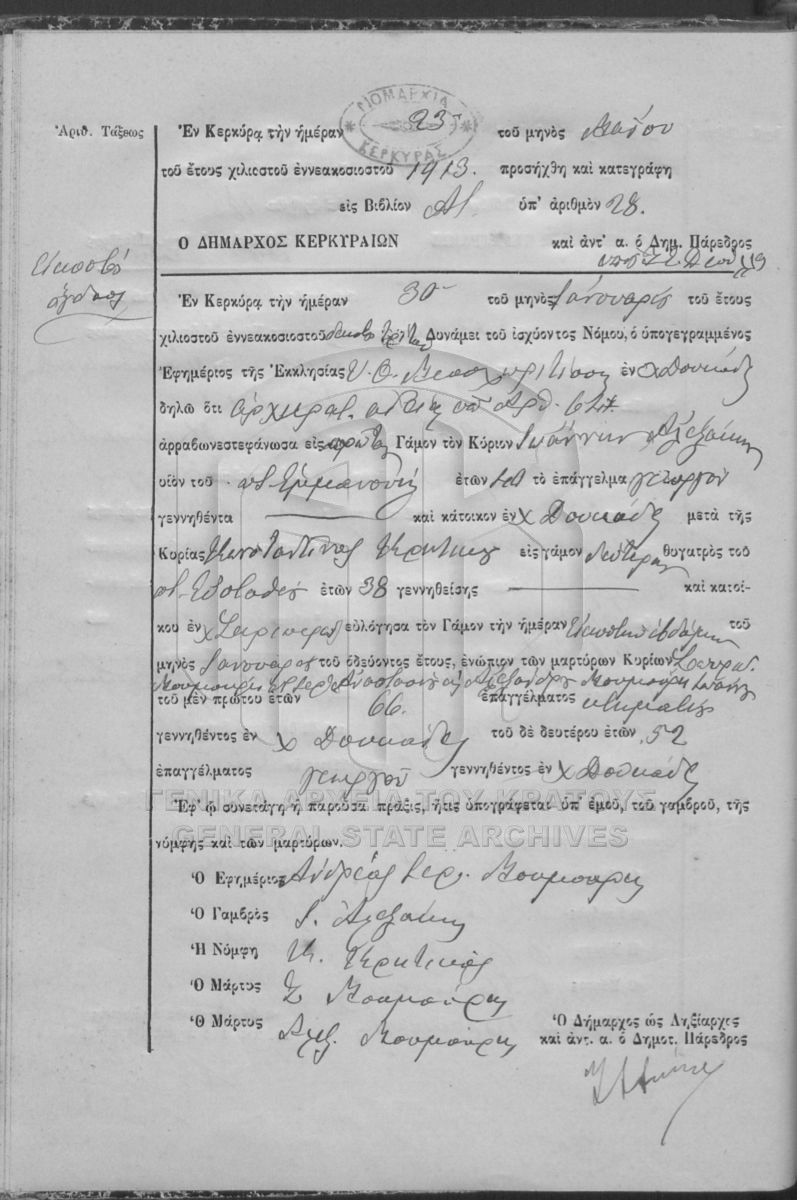 ΝΟΜΑΡΧΙΑ ΚΕΡΚΥΡΑΣ
Ἀριθ. Τάξεως
Ἐν Κερκύρᾳ τὴν ἡμέραν 23 τοῦ μηνὸς Μαΐου
τοῦ ἔτους χιλιοστοῦ ἐννεακοσιοστοῦ 1913. προσήχθη καὶ κατεγράφη
εἰς Βιβλίον ὑπ' ἀριθμὸν 28.
Ο ΔΗΜΑΡΧΟΣ ΚΕΡΚΥΡΑΙΩΝ καὶ ἀντ' α. ὁ Δημ. Πάρεδρος
Εἰκοστὸ
ὄγδοον
Ἐν Κερκύρᾳ τὴν ἡμέραν 30 τοῦ μηνὸς Ἰανουαρίου τοῦ ἔτους
χιλιοστοῦ ἐννεακοσιοστοῦ δεκάτου τρίτου Δυνάμει τοῦ ἰσχύοντος Νόμου, ὁ ὑπογεγραμμένος
Ἐφημέριος τῆς Ἐκκλησίας Υ. Θ. ἐν χ Δουκάδες
δηλῶ ὅτι ἀρχιερατ. ἀδείᾳ ὑπ' Ἀρθ.
ἀρραβωνεστεφάνωσα εἰς πρῶτον Γάμον τὸν Κύριον Ἰωάννην Ἀλεξάκην
υἱὸν τοῦ Ἐμμανουὴλ ἐτῶν τὸ ἐπάγγελμα γεωργοῦ
γεννηθέντα καὶ κάτοικον ἐν χ Δουκάδες μετὰ τῆς
Κυρίας Κωσταντίνας Κρητικοῦ εἰς γάμον δεύτερον θυγατρὸς τοῦ
Εὐσταθίου ἐτῶν 38 γεννηθείσης καὶ κατοί-
κου ἐν χ Σκριπερὸ εὐλόγησα τὸν Γάμον τὴν ἡμέραν Εἰκοστὴν ἑβδόμην τοῦ
μηνὸς Ἰανουαρίου τοῦ ὁδεύοντος ἔτους, ἐνώπιον τῶν μαρτύρων Κυρίων
Μουμούρη Ἀναστασίου Ἀλεξάνδρου Μουμούρη Ἰωάννου
τοῦ μὲν πρώτου ἐτῶν 66. ἐπαγγέλματος κτηματίας
γεννηθέντος ἐν χ Δουκάδες τοῦ δὲ δευτέρου ἐτῶν 52
ἐπαγγέλματος γεωργοῦ γεννηθέντος ἐν χ Δουκάδες
Ἐφ' ᾧ συνετάγη ἡ παροῦσα πρᾶξις, ἥτις ὑπογράφεται ὑπ' ἐμοῦ, τοῦ γαμβροῦ, τῆς
νύμφης καὶ τῶν μαρτύρων.
ΓΕΝΙΚΑ ΑΡΧΕΙΑ ΤΟΥ ΚΡΑΤΟΥΣ
GENERAL STATE ARCHIVES
Ὁ Ἐφημέριος Ἀνδρέας Ἱερ. Μουμούρης
Ὁ Γαμβρὸς Ι. Ἀλεξάκης
Ἡ Νύμφη Κ. Κρητικοῦ
Ὁ Μάρτυς Σ Μουμούρης
Ὁ Μάρτυς Ἀλεξ. Μουμούρης
Ὁ Δήμαρχος ὡς Ληξίαρχος
καὶ ἀντ. α. ὁ Δημοτ. Πάρεδρος